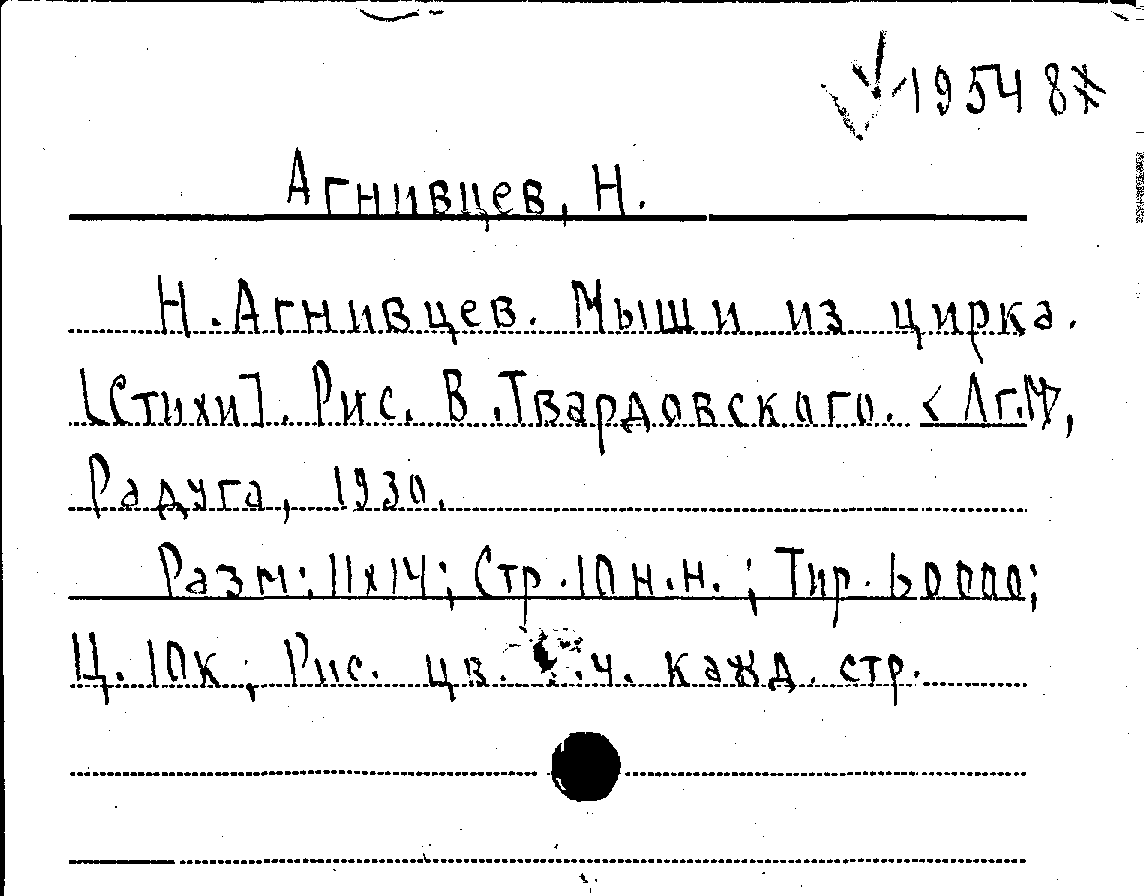 19548ж
Агнивцев, Н.
Н. Агнивцев. Мыши из цирка.
[Стихи]. Рис. В. Твардовского. <Лг.М>,
Радуга, 1930.
Разм: 11х14; Стр. 10 н.н.; Тир. 60000;
Ц. 10к; Рис. цв. ч. кажд. стр.